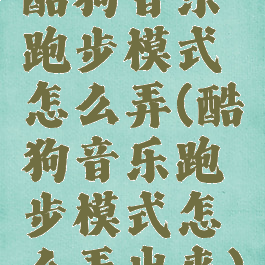 酷狗音乐
跑步模式
怎么弄(酷
狗音乐跑
步模式怎
么弄出来)